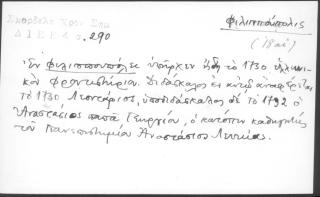 Σκορδέλη Χρον. Σαμ
ΔΙΕΕ 4 σ. 290
Φιλιππούπολις
(18 αἰ)
Ἐν Φιλιππουπόλει ὑπῆρχεν ἤδη τὸ 1730 ἑλληνι-
κὸν φροντιστήριον. Διδάσκαλος ἐν αὐτῷ ἀναφέρεται
τὸ 1730 ὑποδιδάσκαλος δὲ τὸ 1792 ὁ
Ἀναστάσιος παπᾶ Γεωργίου, ὁ κατόπιν καθηγητὴς
τοῦ Πανεπιστημίου Ἀναστάσιος